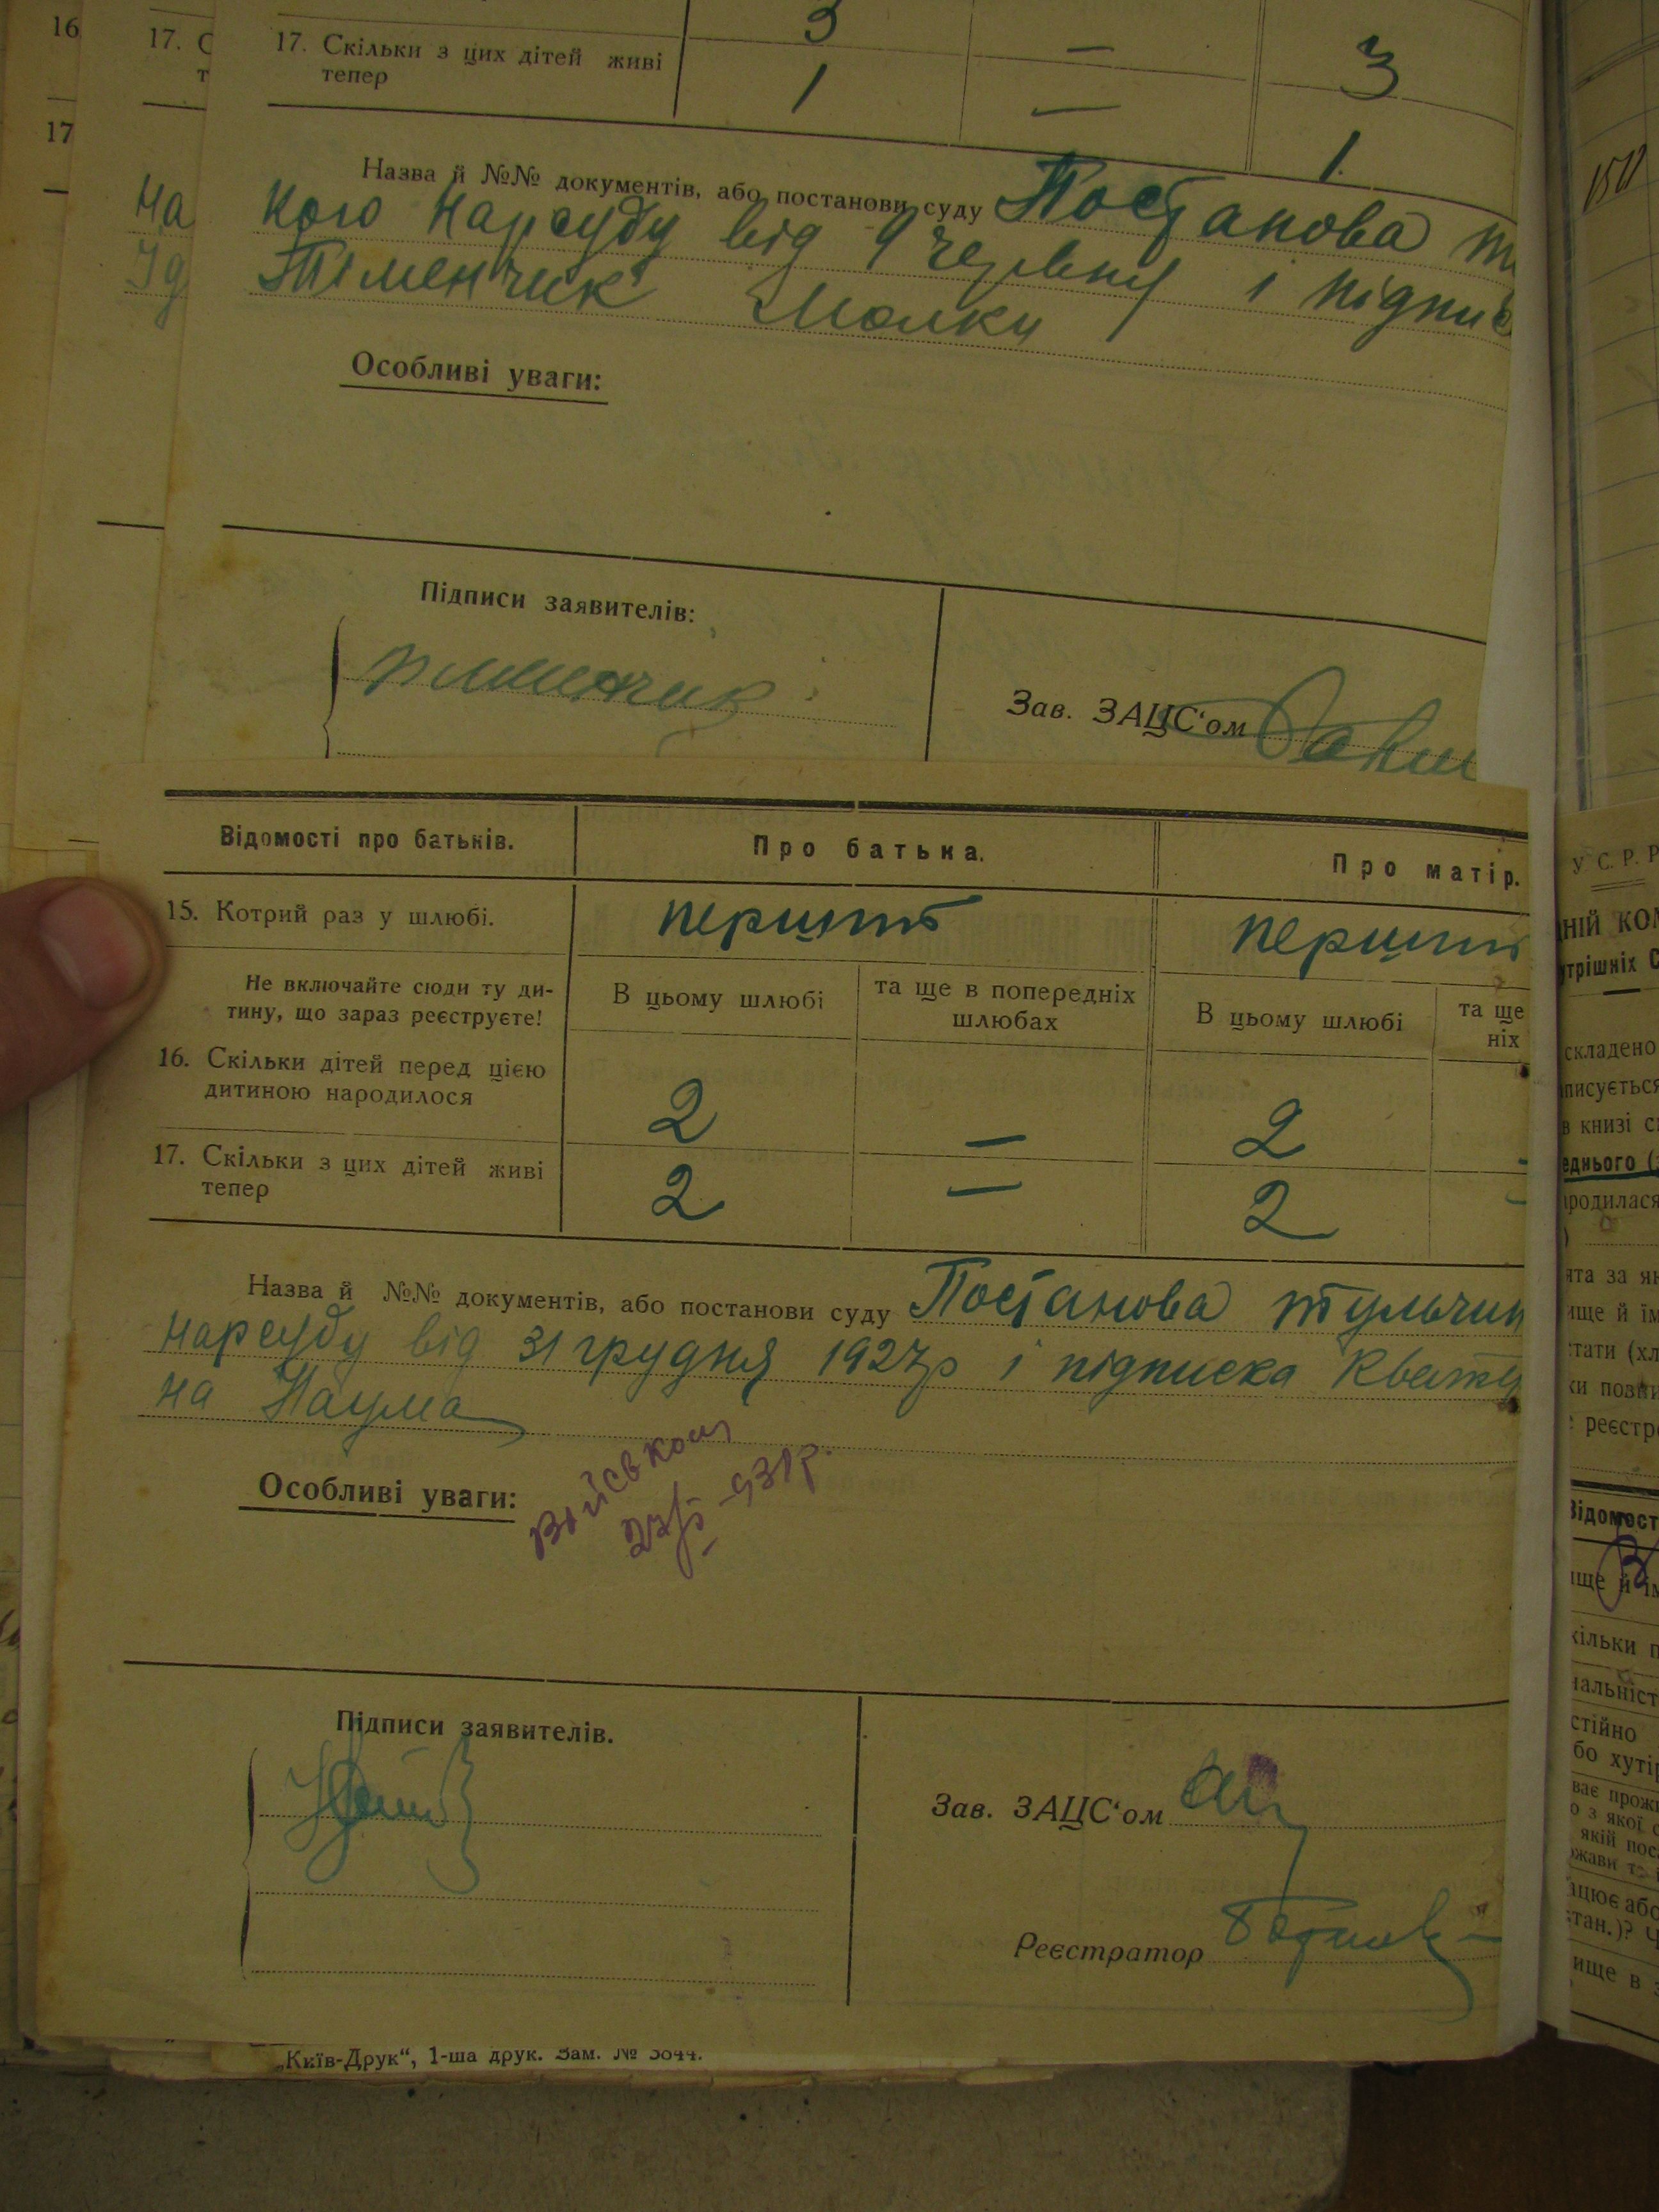 16
17. С
т
17
на
17. Скільки з цих дітей живі
тепер
3 — 3
1 — 1.
Назва й №№ документів, або постанови суду Постанова
кого нарсуду від 9 червня і підпис
Тіменчик Малки
Особливі уваги:
Підписи заявителів:
Зав. ЗАЦС‘ом
Відомості про батьків.
Про батька.
Про матір.
15. Котрий раз у шлюбі.
перший
перший
Не включайте сюди ту ди-
тину, що зараз реєструєте!
В цьому шлюбі
та ще в попередніх
шлюбах
В цьому шлюбі
та ще
ніх
16. Скільки дітей перед цією
дитиною народилося
2 — 2 -
17. Скільки з цих дітей живі
тепер
2 — 2 -
Назва й №№ документів, або постанови суду Постанова тульчин
нарсуду від 31 грудня 1927р і підписка Кватер
на Наума
Особливі уваги:
Військом
27/5 -931р.
Підписи заявителів.
Зав. ЗАЦС‘ом
Реєстратор
„Київ-Друк“, 1-ша друк. Зам. № 5844.
У С. Р. Р
НІЙ КОМ
утрішніх С
складено
писується
в книзі с
еднього (
родилася
)
ята за як
ище й їм
тати (хл
ки повни
реєстр
Відомост
ище й ім
кільки п
нальніст
стійно
бо хутір
ває прож
о з якої с
якій пос
жави т
ацює або
стан.)? Ч
ище в з